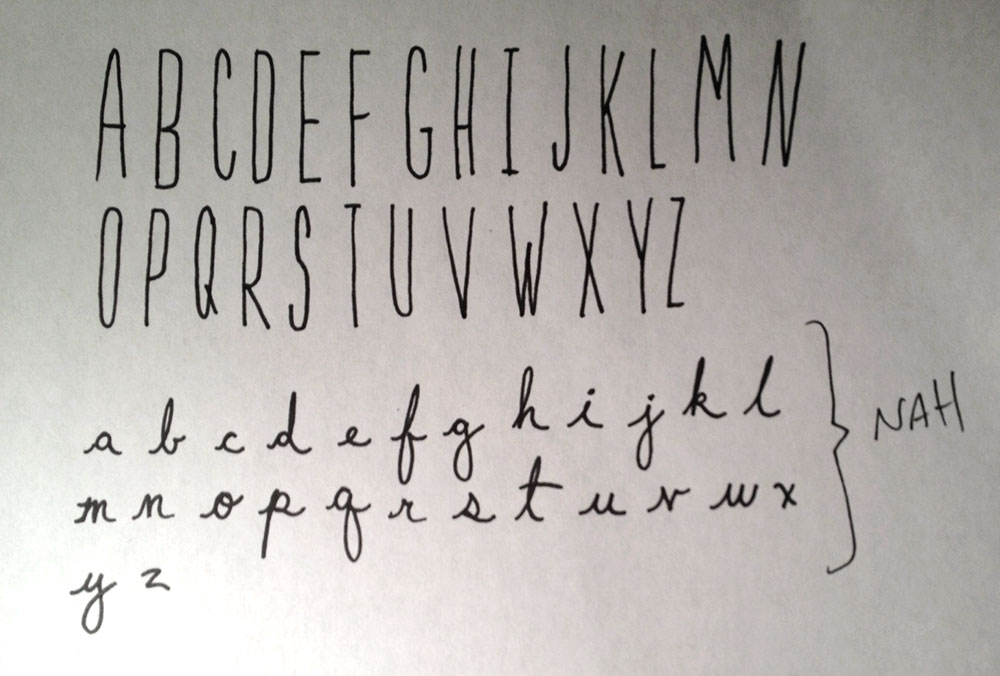 A B C D E F G H I J K L M N
O P Q R S T U V W X Y Z
a b c d e f g h i j k l
m n o p q r s t u v w x
y z
NAH